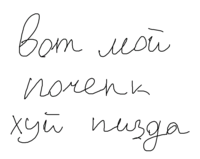 вот мой
почерк
хуй пизда